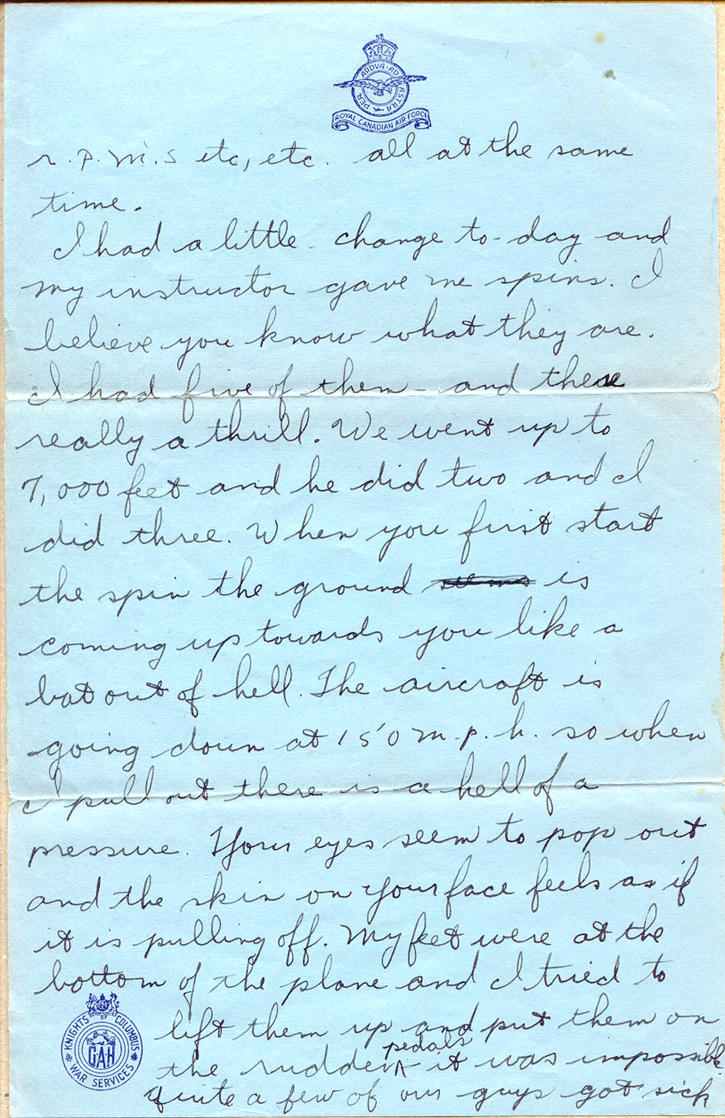 PER ARDVA AD ASTRA
ROYAL CANADIAN AIR FORCE
r.p.m.s etc, etc. all at the same
time.
I had a little change to-day and
my instructor gave me spins. I
believe you know what they are.
I had five of them - and there
really a thrill. We went up to
7,000 feet and he did two and I
did three. When you first start
the spin the ground seems is
coming up towards you like a
bat out of hell. The aircraft is
going down at 150 m.p.h. so when
I pull out there is a hell of a
pressure. Your eyes seem to pop out
and the skin on your face feels as if
it is pulling off. My feet were at the
bottom of the plane and I tried to
lift them up and put them on
the rudder pedals it was impossible.
Quite a few of our guys got sick
KNIGHTS OF COLUMBUS
CAH
WAR SERVICES